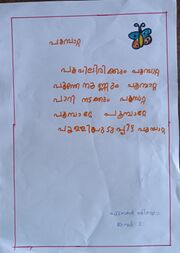 പൂമ്പാറ്റ
പൂവിലിരിക്കും പൂമ്പാറ്റ
പൂന്തേനുണ്ണും പൂമ്പാറ്റ
പാറി നടക്കും പൂമ്പാറ്റ
പൂമ്പാറ്റേ പൂമ്പാറ്റേ
പുള്ളിയുടുപ്പിട്ട പൂമ്പാറ്റ